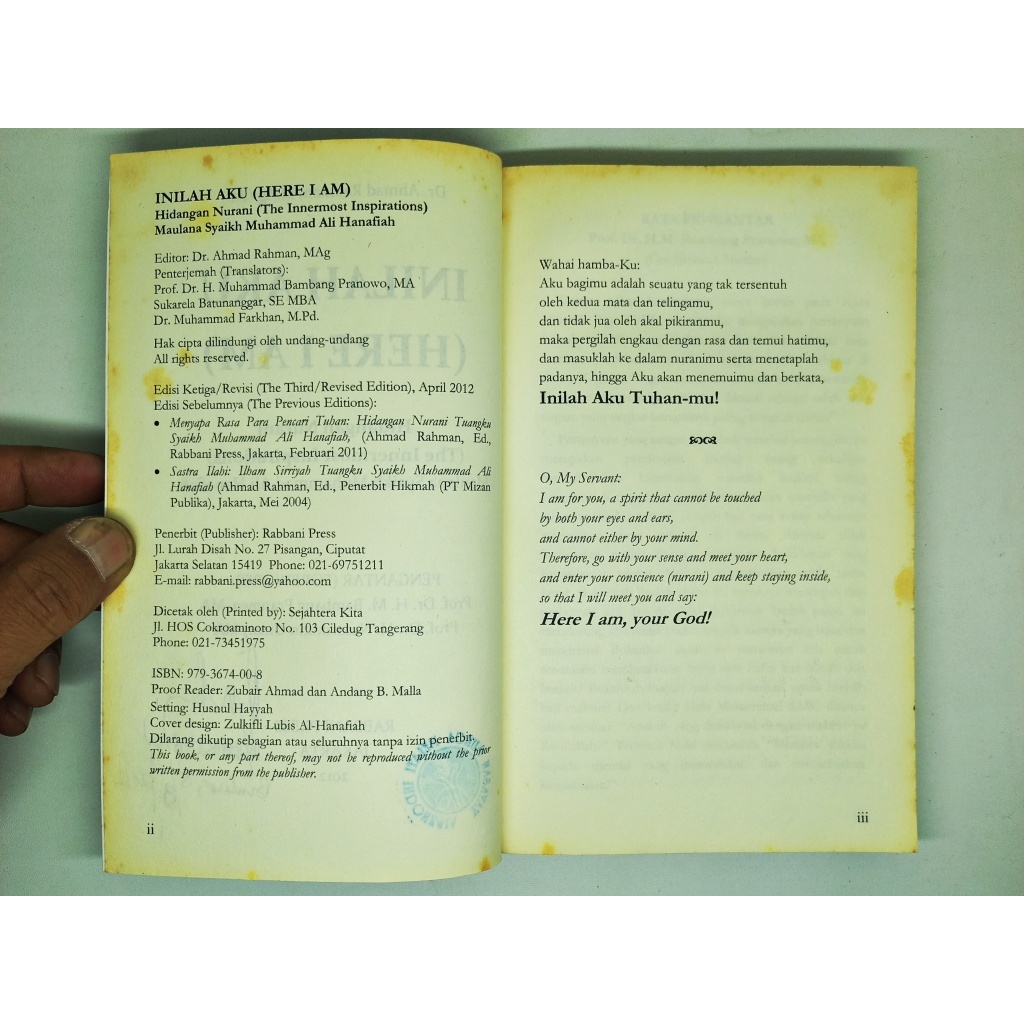 INILAH AKU (HERE I AM)
Hidangan Nurani (The Innermost Inspirations)
Maulana Syaikh Muhammad Ali Hanafiah
Editor: Dr. Ahmad Rahman, MAg
Penterjemah (Translators):
Prof. Dr. H. Muhammad Bambang Pranowo, MA
Sukarela Batunanggar, SE MBA
Dr. Muhammad Farkhan, M.Pd.
Hak cipta dilindungi oleh undang-undang
All rights reserved.
Edisi Ketiga/Revisi (The Third/Revised Edition), April 2012
Edisi Sebelumnya (The Previous Editions):
• Menyapa Rasa Para Pencari Tuhan: Hidangan Nurani Tuangku
Syaikh Muhammad Ali Hanafiah, (Ahmad Rahman, Ed.,
Rabbani Press, Jakarta, Februari 2011)
• Sastra Ilahi: Ilham Sirriyah Tuangku Syaikh Muhammad Ali
Hanafiah (Ahmad Rahman, Ed., Penerbit Hikmah (PT Mizan
Publika), Jakarta, Mei 2004)
Penerbit (Publisher): Rabbani Press
Jl. Lurah Disah No. 27 Pisangan, Ciputat
Jakarta Selatan 15419 Phone: 021-69751211
E-mail: rabbani.press@yahoo.com
Dicetak oleh (Printed by): Sejahtera Kita
Jl. HOS Cokroaminoto No. 103 Ciledug Tangerang
Phone: 021-73451975
ISBN: 979-3674-00-8
Proof Reader: Zubair Ahmad dan Andang B. Malla
Setting: Husnul Hayyah
Cover design: Zulkifli Lubis Al-Hanafiah
Dilarang dikutip sebagian atau seluruhnya tanpa izin penerbit.
This book, or any part thereof, may not be reproduced without the prior
written permission from the publisher.
ii
Wahai hamba-Ku:
Aku bagimu adalah seuatu yang tak tersentuh
oleh kedua mata dan telingamu,
dan tidak jua oleh akal pikiranmu,
maka pergilah engkau dengan rasa dan temui hatimu,
dan masuklah ke dalam nuranimu serta menetaplah
padanya, hingga Aku akan menemuimu dan berkata,
Inilah Aku Tuhan-mu!
O, My Servant:
I am for you, a spirit that cannot be touched
by both your eyes and ears,
and cannot either by your mind.
Therefore, go with your sense and meet your heart,
and enter your conscience (nurani) and keep staying inside,
so that I will meet you and say:
Here I am, your God!
iii